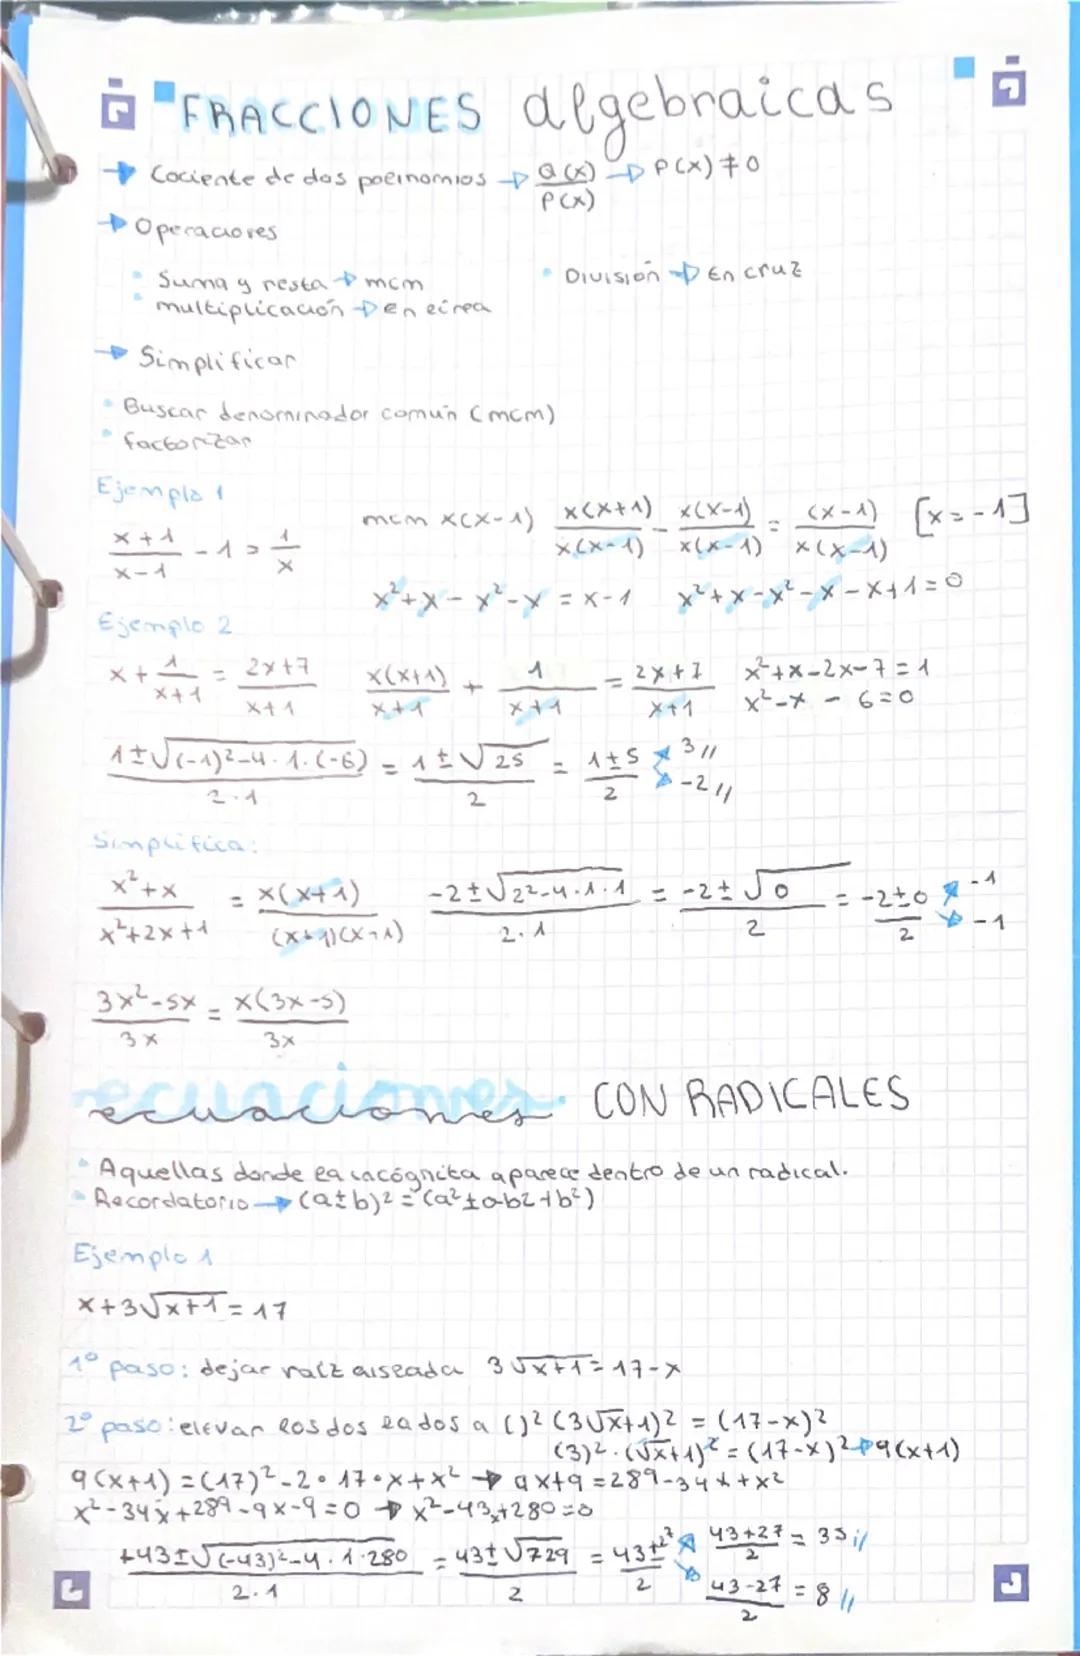 "FRACCIONES algebraicas "
→ Cociente de dos polinomios → Q(x)/P(x) → P(x) ≠ 0
→ Operaciones
• Suma y resta → mcm
• División → En cruz
• multiplicación → en línea
→ Simplificar
• Buscar denominador común (mcm)
• factorizar
Ejemplo 1
(x+1)/(x-1) - 1 = 1/x
mcm x(x-1) x(x+1)/x(x-1) - x(x-1)/x(x-1) = (x-1)/x(x-1) [x=-1]
x²+x-x²-x = x-1 x²+x-x²-x-x+1=0
Ejemplo 2
x + 1/(x+1) = (2x+7)/(x+1)
x(x+1)/(x+1) + 1/(x+1) = (2x+7)/(x+1)
x²+x-2x-7=1
x²-x-6=0
(1±√((-1)²-4·1·(-6)))/(2·1) = (1±√25)/2 = (1±5)/2 3// -2//
Simplifica:
(x²+x)/(x²+2x+1) = x(x+1)/(x+1)(x+1)
(-2±√(2²-4·1·1))/(2·1) = (-2±√0)/2 = (-2±0)/2 -1 -1
(3x²-5x)/3x = x(3x-5)/3x
ecuaciones CON RADICALES
• Aquellas donde la incógnita aparece dentro de un radical.
• Recordatorio → (a±b)² = (a²±ab2+b²)
Ejemplo 1
x+3√(x+1) = 17
1º paso: dejar raíz aiseada 3√(x+1) = 17-x
2º paso: elevar los dos lados a ()² (3√x+1)² = (17-x)²
(3)²·(√x+1)² = (17-x)² → 9(x+1)
9(x+1) = (17)²-2·17·x+x² → 9x+9 = 289-34x+x²
x²-34x+289-9x-9=0 → x²-43x+280=0
(+43±√((-43)²-4·1·280))/(2·1) = (43±√729)/2 = (43±27)/2 (43+27)/2 = 35//
(43-27)/2 = 8//